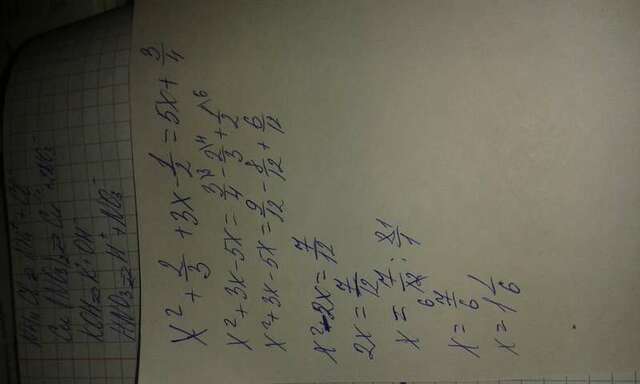 NH₄Cl ⇄ NH₄⁺ + Cl⁻
Cu(NO₃)₂ ⇄ Cu + 2NO₃⁻
KOH ⇄ K⁺ + OH⁻
HNO₃ ⇄ H⁺ + NO₃⁻
x² + 2/3 + 3x - 1/2 = 5x + 3/4
x² + 3x - 5x = 3/4 \3 - 2/3 \4 + 1/2 \6
x² + 3x - 5x = 9/12 - 8/12 + 6/12
x² - 2x = 7/12
2x = 7/12
x = 7/12 6 : 2 1/1
x = 7/6
x = 1 1/6